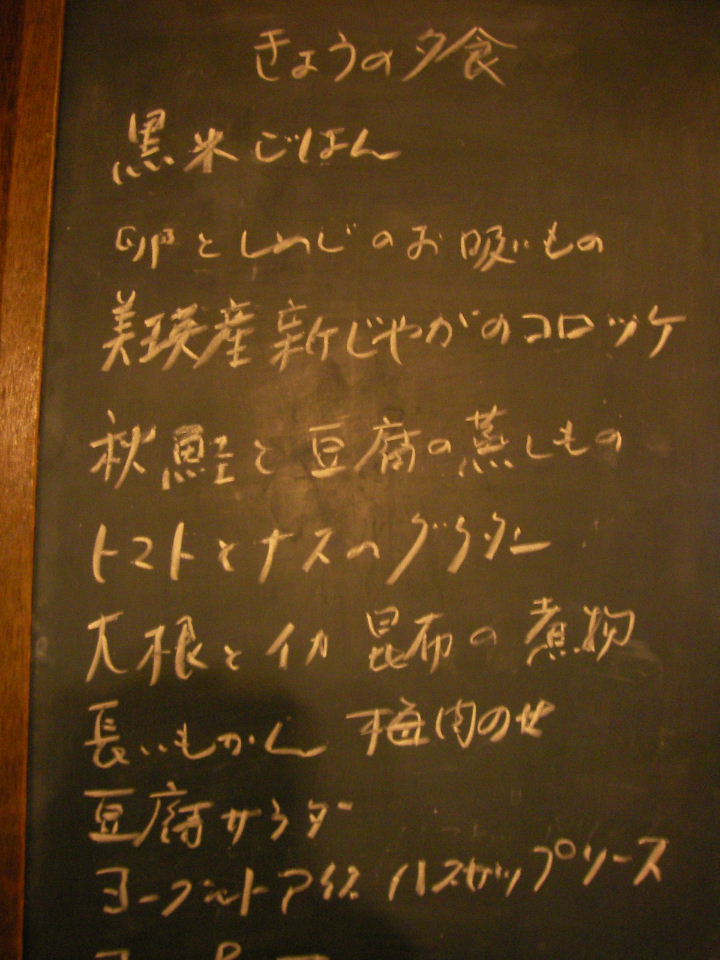 きょうの夕食
黒米ごはん
卵としめじのお吸いもの
美瑛産新じゃがのコロッケ
秋鮭と豆腐の蒸しもの
トマトとナスのグラタン
大根とイカ 昆布の煮物
長いもかん 梅肉のせ
豆腐サラダ
ヨーグルトアイス ハスカップソース